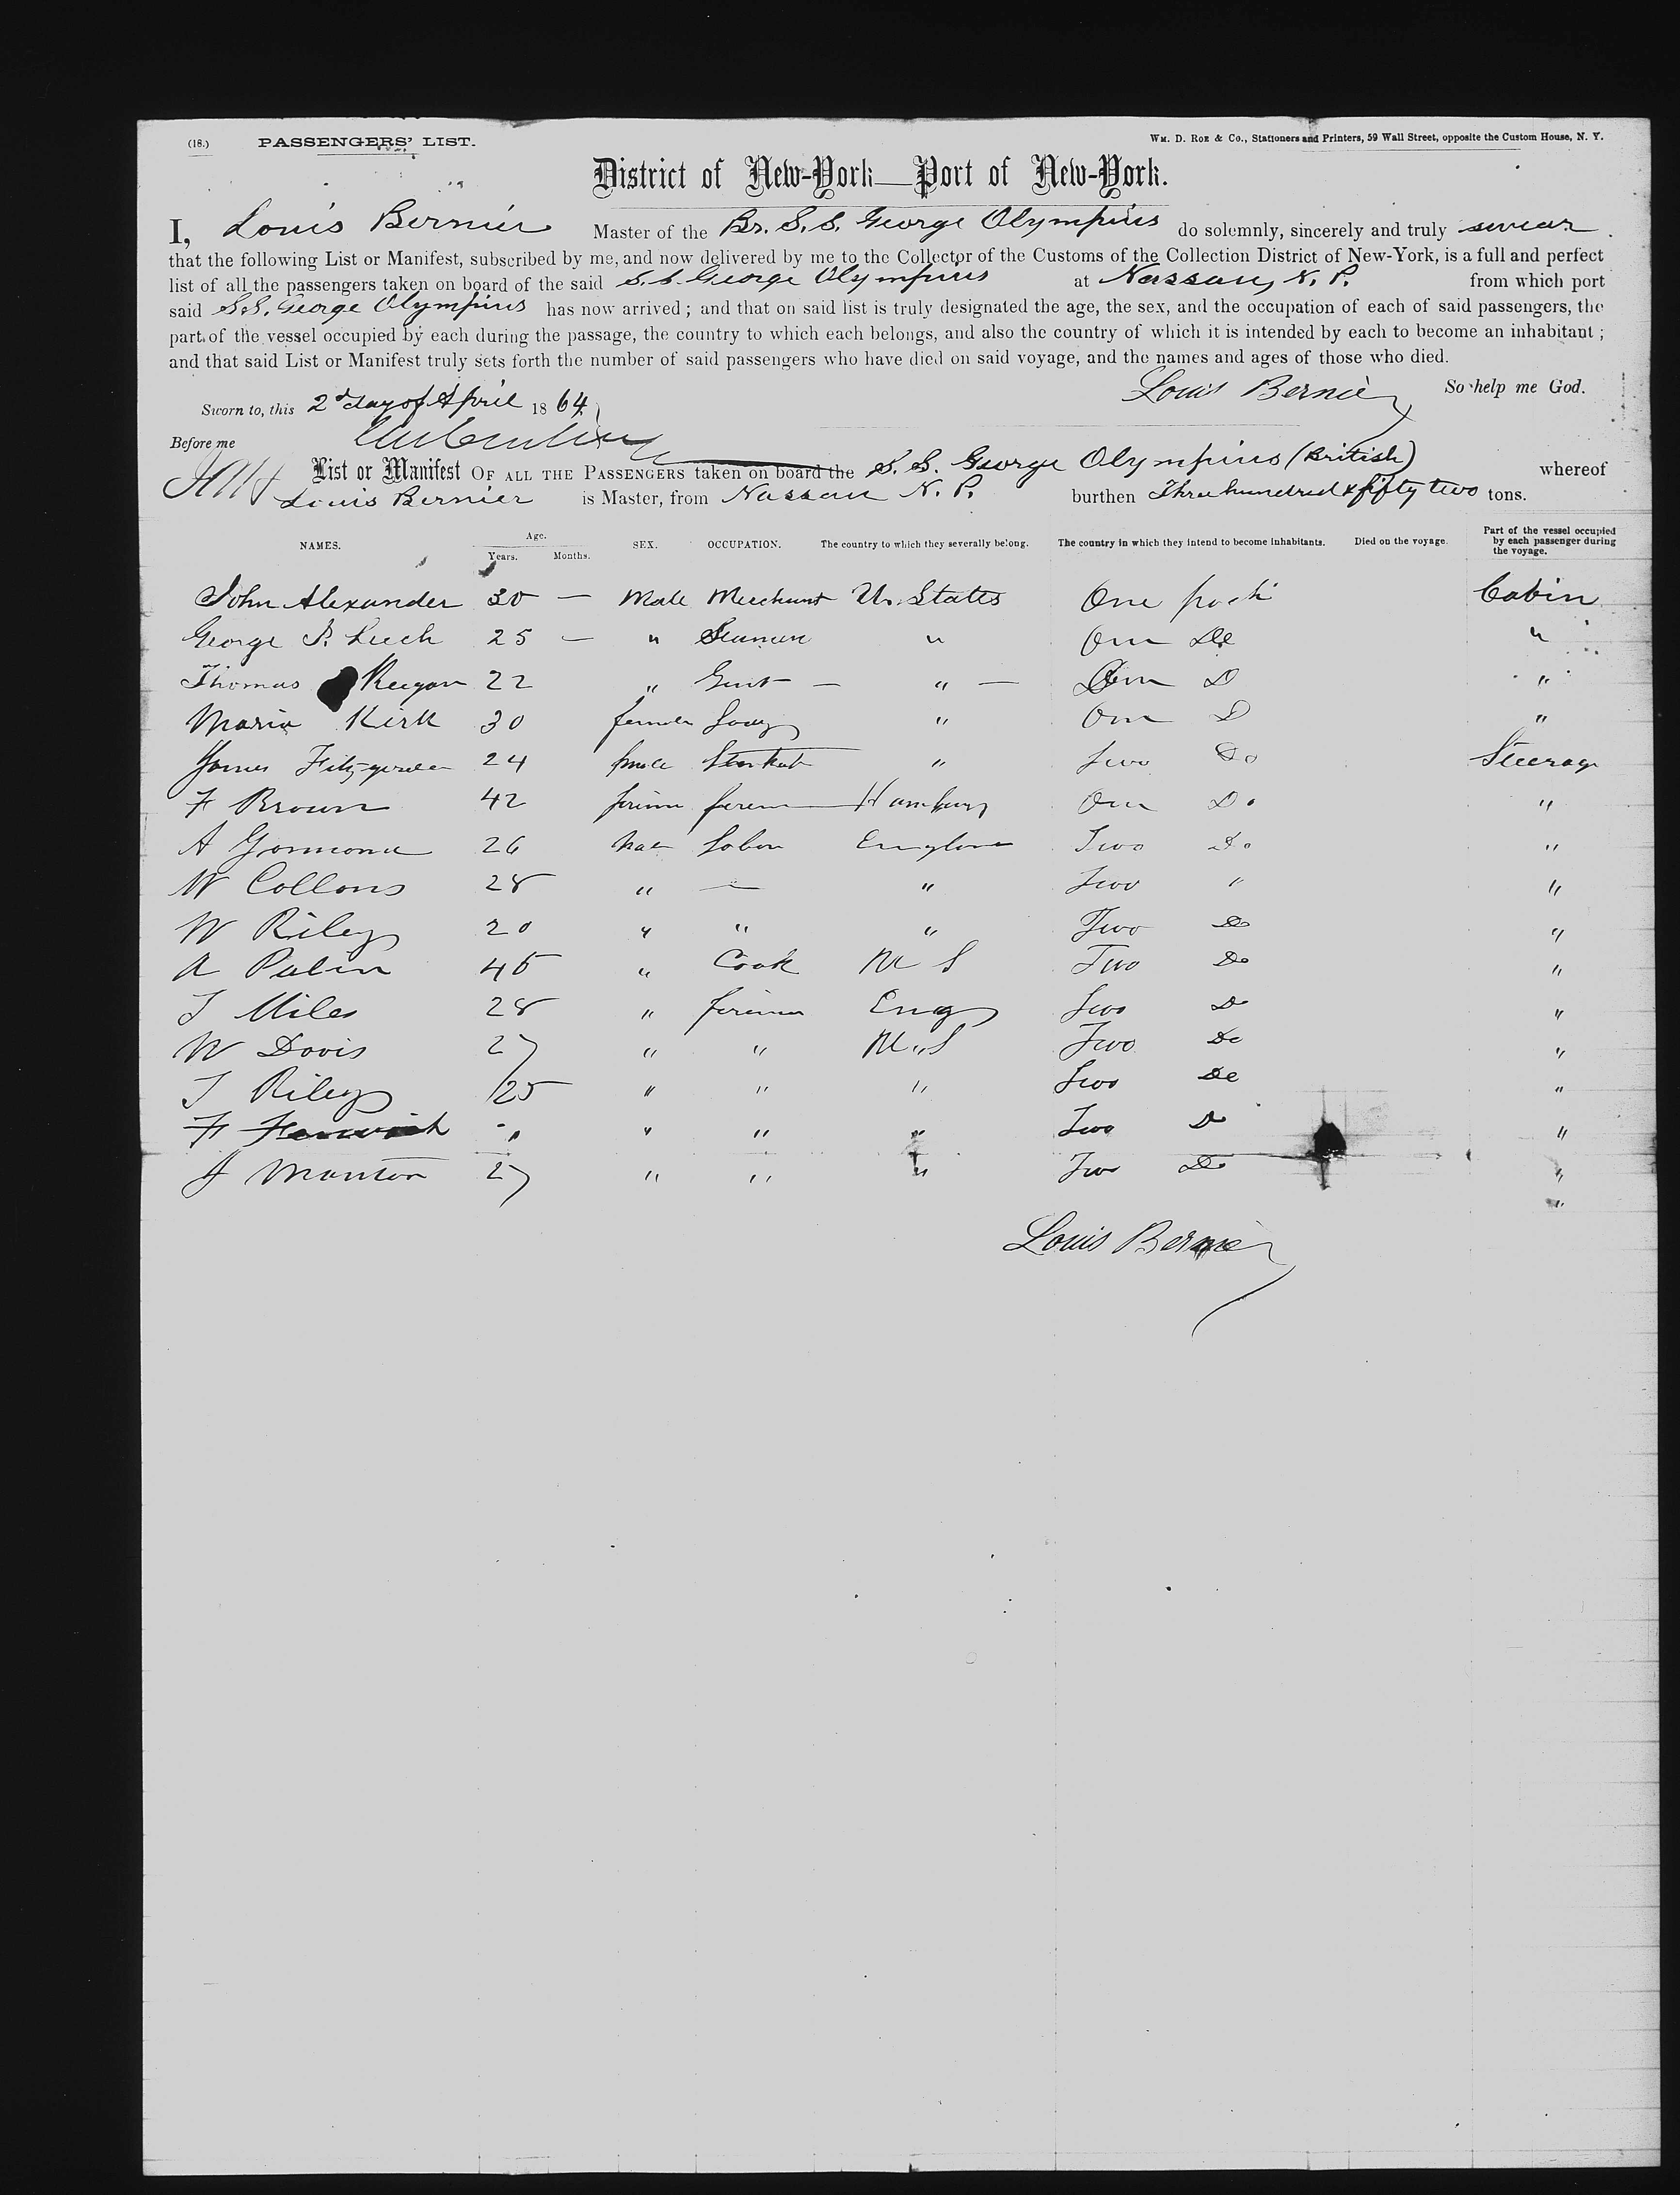 (18.) PASSENGERS' LIST. Wm. D. Roe & Co., Stationers and Printers, 59 Wall Street, opposite the Custom House, N. Y.
District of New-York—Port of New-York.
I, Louis Bernier Master of the Br. S.S. George Olympius do solemnly, sincerely and truly swear
that the following List or Manifest, subscribed by me, and now delivered by me to the Collector of the Customs of the Collection District of New-York, is a full and perfect
list of all the passengers taken on board of the said S.S. George Olympius at Nassau, N. P. from which port
said S.S. George Olympius has now arrived; and that on said list is truly designated the age, the sex, and the occupation of each of said passengers, the
part of the vessel occupied by each during the passage, the country to which each belongs, and also the country of which it is intended by each to become an inhabitant;
and that said List or Manifest truly sets forth the number of said passengers who have died on said voyage, and the names and ages of those who died.
Louis Bernier So help me God.
Sworn to, this 2d day of April 1864
Before me
List or Manifest OF ALL THE PASSENGERS taken on board the S. S. George Olympius (British) whereof
Louis Bernier is Master, from Nassau N. P. burthen Three hundred & fifty two tons.
NAMES. Age. Years. Months. SEX. OCCUPATION. The country to which they severally belong. The country in which they intend to become inhabitants. Died on the voyage. Part of the vessel occupied by each passenger during the voyage.
John Alexander 30 — Male Merchant U. States One Cabin
George 25 — " Seaman " One Do "
Thomas Keegan 22 " Gent — " — D "
Maria Kirk 30 female " One D "
James 24 " Two Do Steerage
F Brown 42 Hamburg One Do "
A 26 Two Do "
W Collons 28 " — " Two " "
W Riley 20 " " " Two Do "
A 45 " Cook S Two Do "
T Miles 28 " Eng Two Do "
W Davis 27 " " S Two Do "
T Riley 25 " " " Two Do "
F " " " Two D "
J Manton 27 " " " Two Do "
"
Louis Bernier